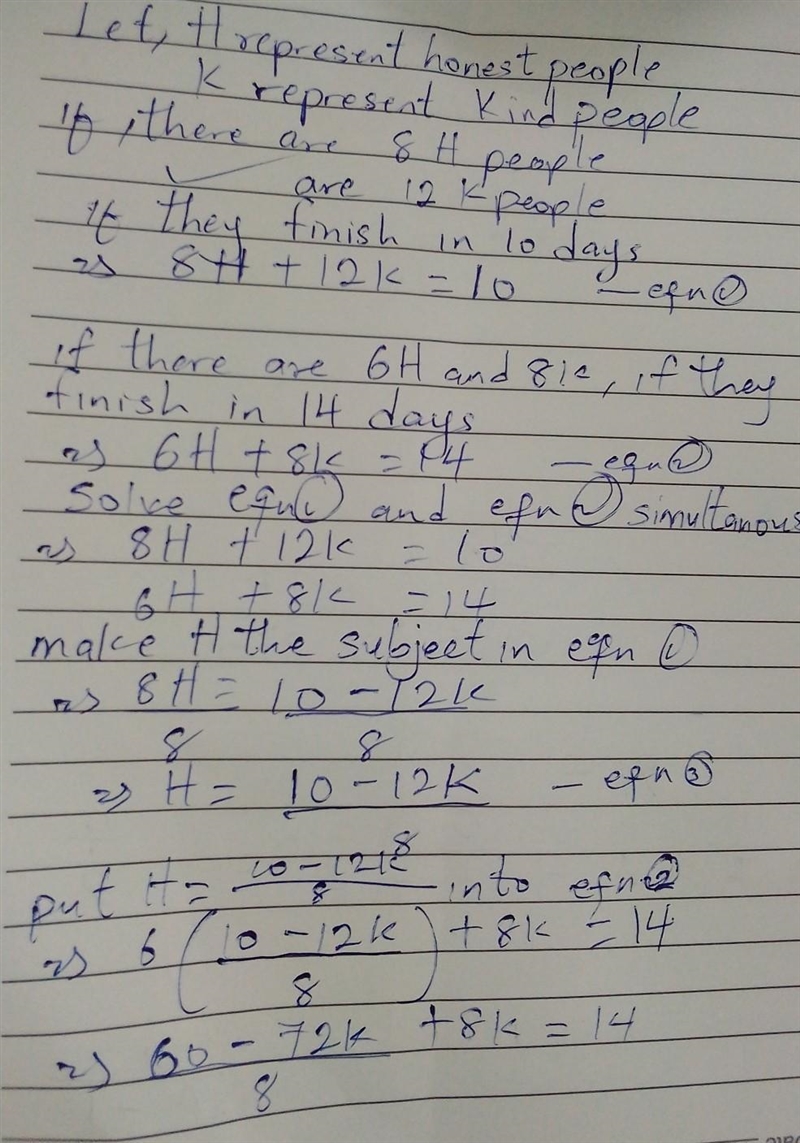 Let, H represent honest people
K represent Kind people
If, there are 8 H people
are 12 K people
If they finish in 10 days
=> 8H + 12K = 10 — eqn ①
if there are 6H and 8K, if they
finish in 14 days
=> 6H + 8K = 14 — eqn ②
Solve eqn ① and eqn ② simultanous
=> 8H + 12K = 10
6H + 8K = 14
make H the subject in eqn ①
=> 8H = 10 - 12K
8 8
=> H = 10 - 12K — eqn ③
8
put H = 10 - 12K into eqn ②
8
=> 6 ( 10 - 12K ) + 8K = 14
8
=> 60 - 72K + 8K = 14
8